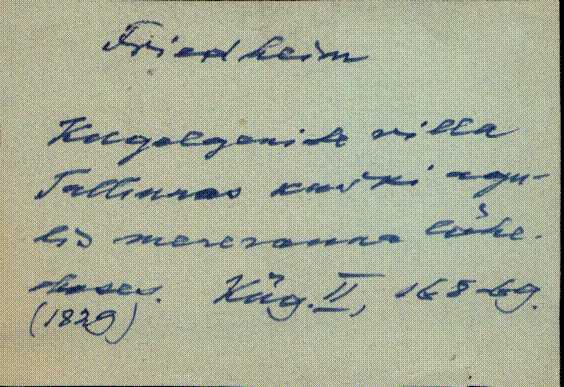 Friedheim
Kügelgenide villa
Tallinnas agu-
lis mereranna lähe-
duses. Küg. II, 168-69.
(1829)